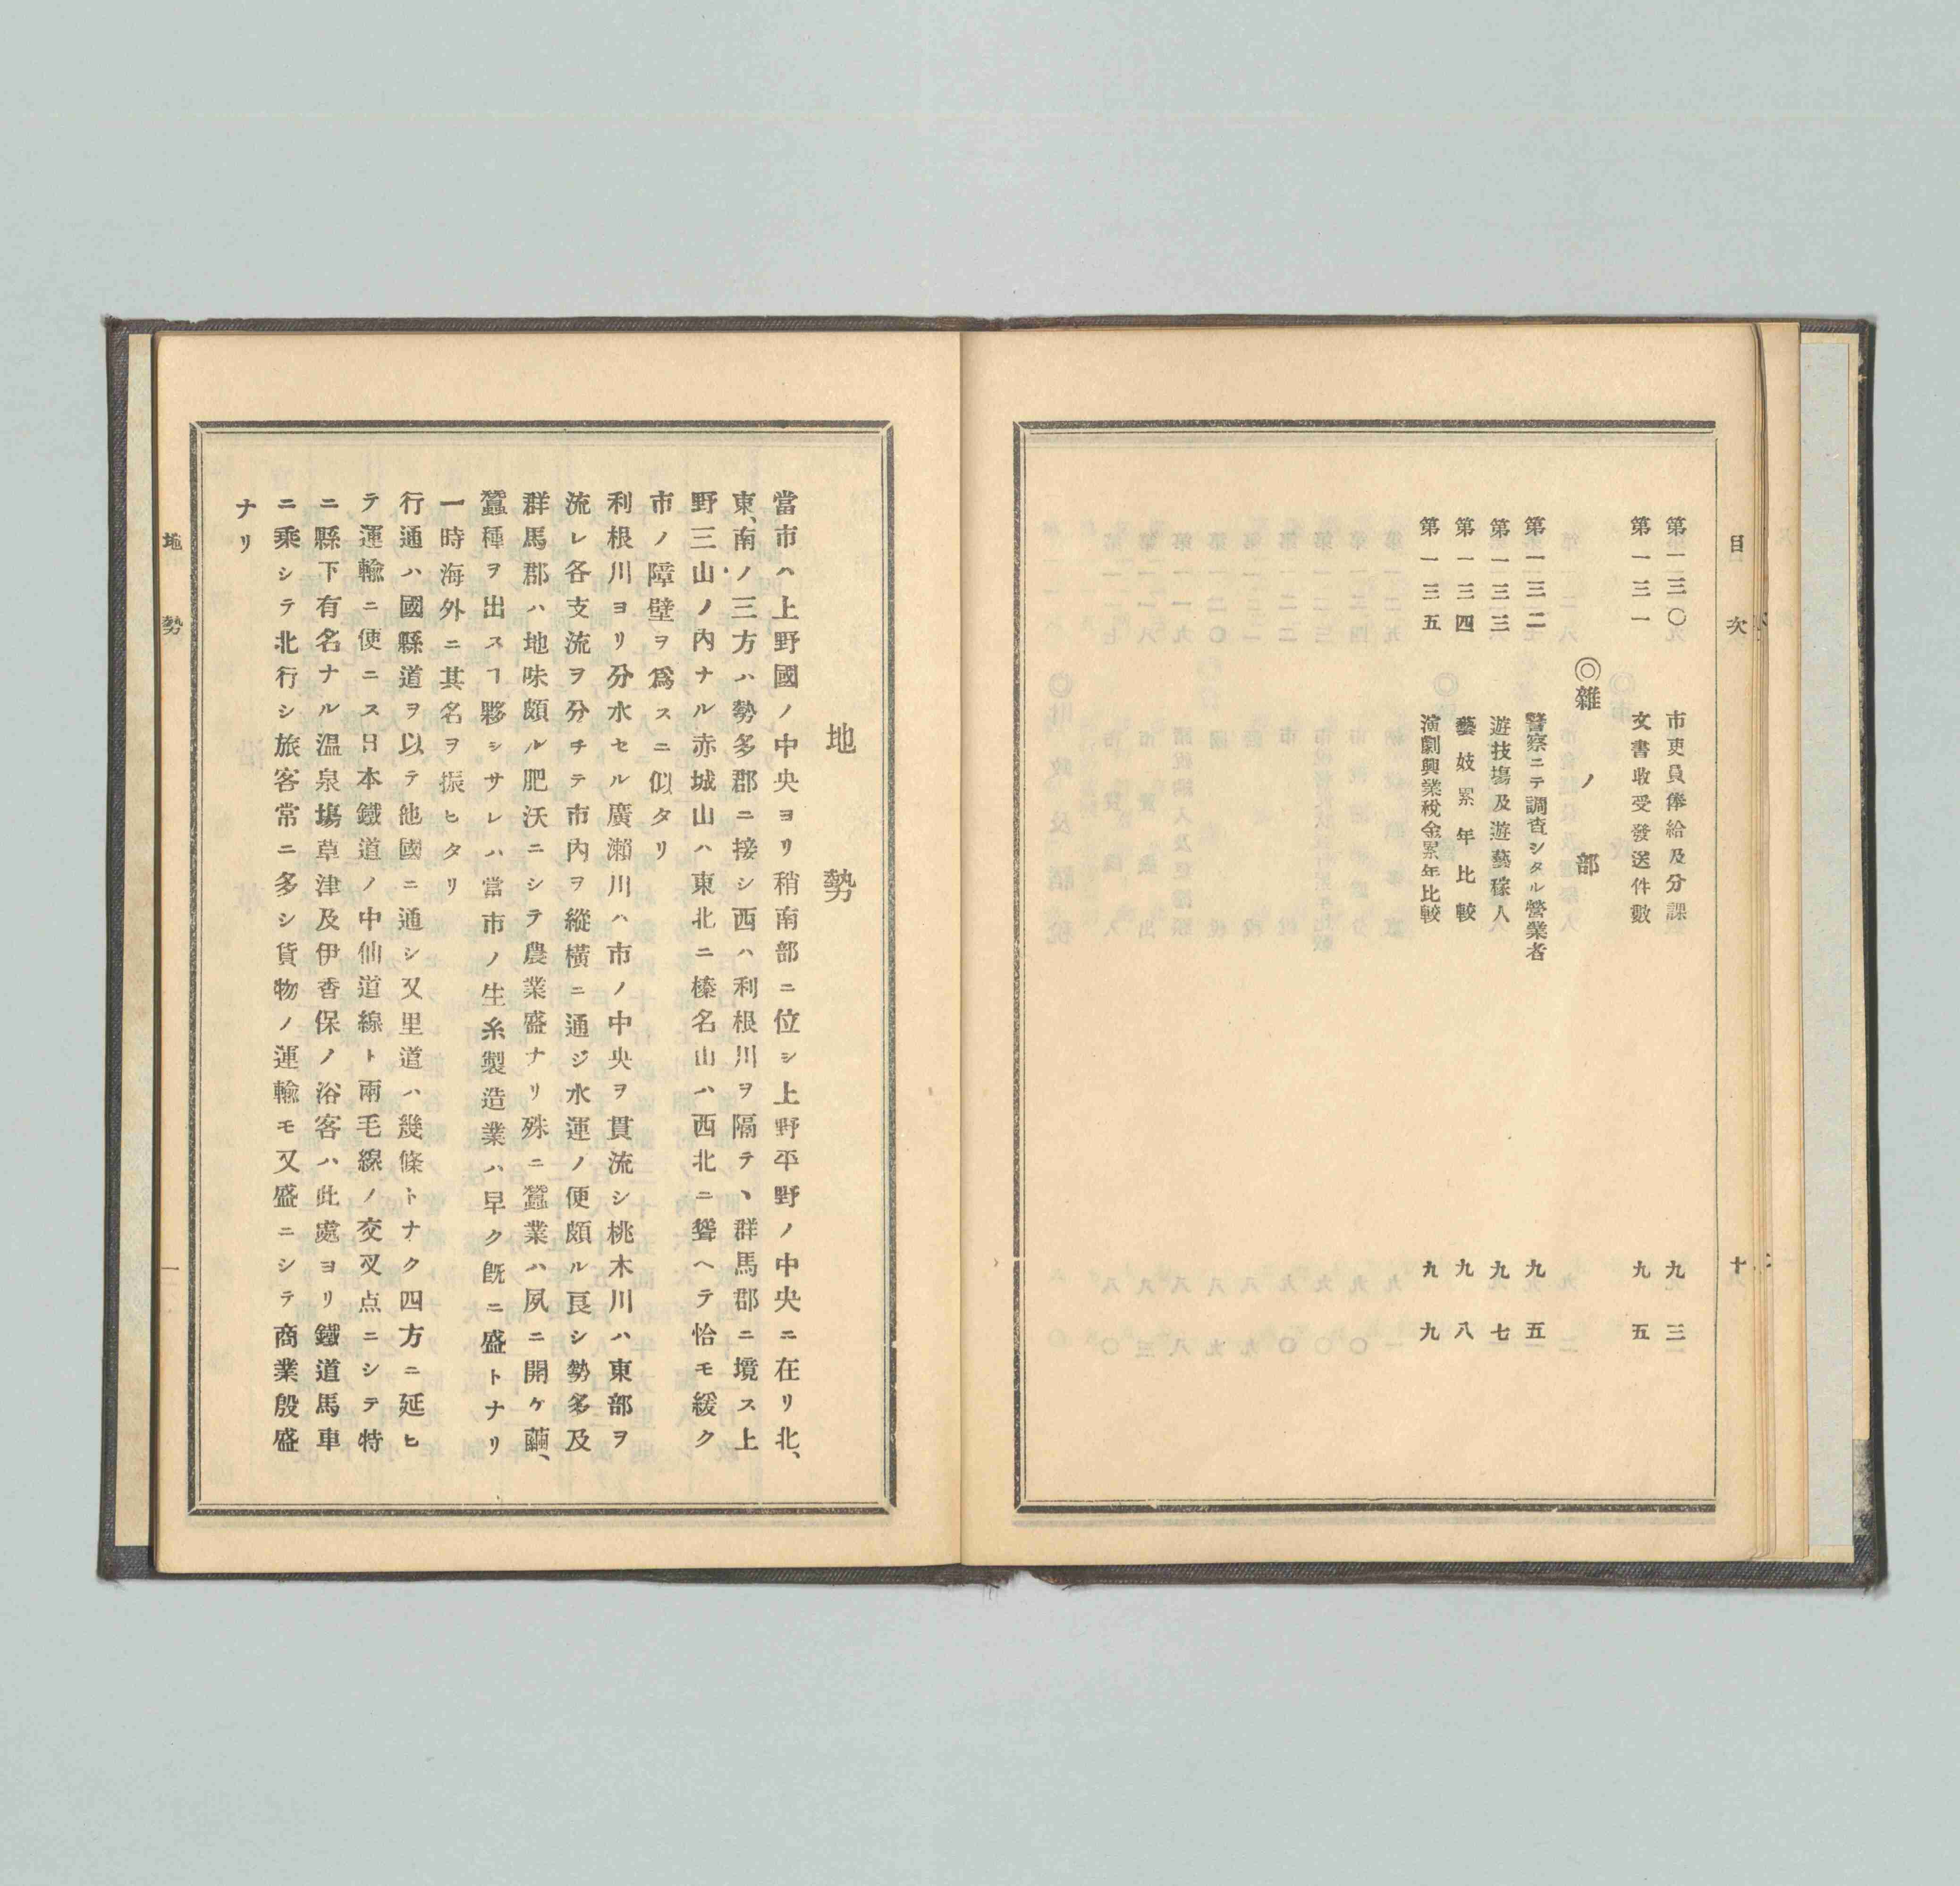 目次
十
第一三〇 市吏員俸給及分課 九三
第一三一 文書收受發送件數 九五
◎雜ノ部
第一三二 警察ニテ調査シタル營業者 九五
第一三三 遊技塲及遊藝稼人 九七
第一三四 藝妓累年比較 九八
第一三五 演劇興業稅金累年比較 九九
地勢
當市ハ上野國ノ中央ヨリ稍南部ニ位シ上野平野ノ中央ニ在リ北、
東、南ノ三方ハ勢多郡ニ接シ西ハ利根川ヲ隔テヽ群馬郡ニ境ス上
野三山ノ內ナル赤城山ハ東北ニ榛名山ハ西北ニ聳ヘテ恰モ緩ク
市ノ障壁ヲ爲スニ似タリ
利根川ヨリ分水セル廣瀨川ハ市ノ中央ヲ貫流シ桃木川ハ東部ヲ
流レ各支流ヲ分チテ市內ヲ縱橫ニ通ジ水運ノ便頗ル良シ勢多及
群馬郡ハ地味頗ル肥沃ニシテ農業盛ナリ殊ニ蠶業ハ夙ニ開ケ繭、
蠶種ヲ出スヿ夥シサレハ當市ノ生糸製造業ハ早ク旣ニ盛トナリ
一時海外ニ其名ヲ振ヒタリ
行通ハ國縣道ヲ以テ他國ニ通シ又里道ハ幾條トナク四方ニ延ヒ
テ運輸ニ便ニス日本鐵道ノ中仙道線ト兩毛線ノ交叉点ニシテ特
ニ縣下有名ナル溫泉塲草津及伊香保ノ浴客ハ此處ヨリ鐵道馬車
ニ乘シテ北行シ旅客常ニ多シ貨物ノ運輸モ又盛ニシテ商業殷盛
ナリ
地勢
一